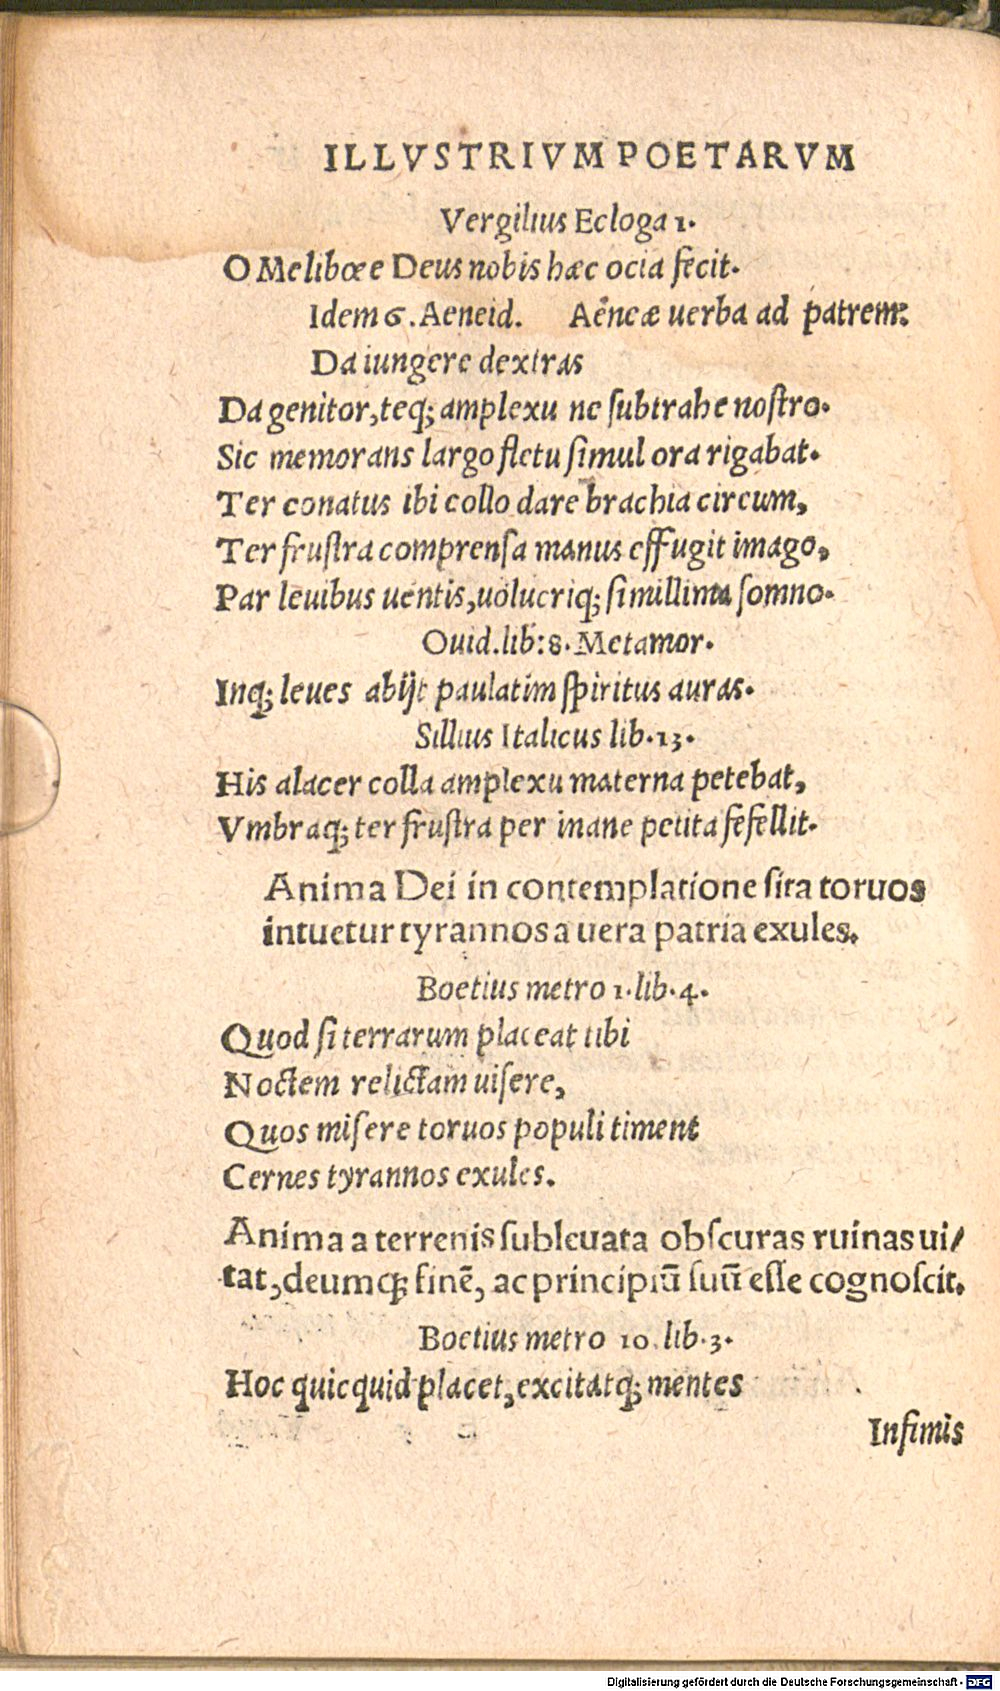 ILLVSTRIVM POETARVM
Vergilius Ecloga 1.
O Meliboee Deus nobis hæc ocia fecit.
Idem 6. Aeneid. Aēneæ uerba ad patrem:
Da iungere dextras
Da genitor, teq; amplexu ne ſubtrahe noſtro.
Sic memorans largo fletu ſimul ora rigabat.
Ter conatus ibi collo dare brachia circum,
Ter fruſtra comprenſa manus effugit imago,
Par leuibus uentis, uolucriq; ſimillima ſomno.
Ouid. lib: 8. Metamor.
Inq; leues abijt paulatim ſpiritus auras.
Sillius Italicus lib. 13.
His alacer colla amplexu materna petebat,
Vmbraq; ter fruſtra per inane petita fefellit.
Anima Dei in contemplatione ſita toruos
intuetur tyrannos a uera patria exules.
Boetius metro 1. lib. 4.
Quod ſi terrarum placeat tibi
Noctem relictam uiſere,
Quos miſere toruos populi timent
Cernes tyrannos exules.
Anima a terrenis ſubleuata obſcuras ruinas ui/
tat, deumq; finē, ac principiū ſuū eſſe cognoſcit.
Boetius metro 10. lib. 3.
Hoc quicquid placet, excitatq; mentes
Infimis
Digitalisierung gefördert durch die Deutsche Forschungsgemeinschaft - DFG